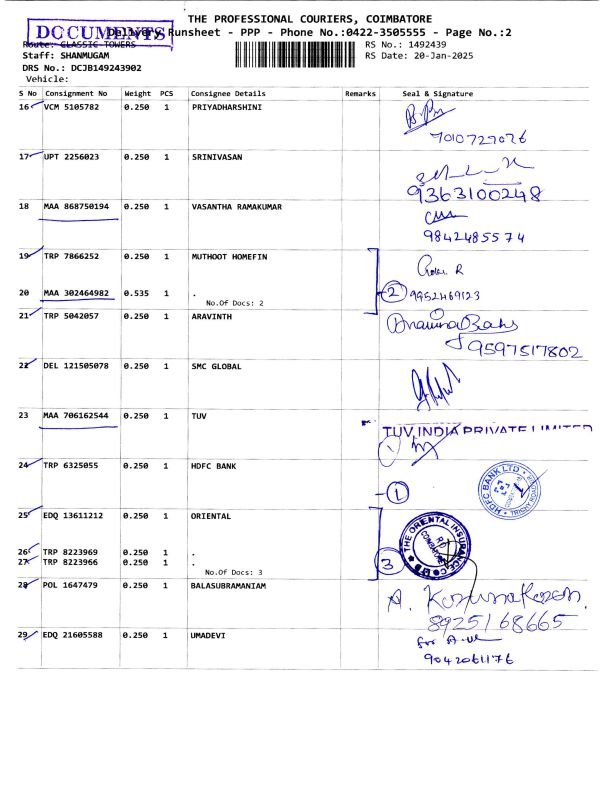 THE PROFESSIONAL COURIERS, COIMBATORE
DOCUMENTS
Delivery Runsheet - PPP - Phone No.:0422-3505555 - Page No.:2
Route: CLASSIC TOWERS
RS No.: 1492439
Staff: SHANMUGAM
RS Date: 20-Jan-2025
DRS No.: DCJB149243902
Vehicle:
S No Consignment No Weight PCS Consignee Details Remarks Seal & Signature
16 VCM 5105782 0.250 1 PRIYADHARSHINI
7010727026
17 UPT 2256023 0.250 1 SRINIVASAN
9363100248
18 MAA 868750194 0.250 1 VASANTHA RAMAKUMAR
9842485574
19 TRP 7866252 0.250 1 MUTHOOT HOMEFIN
20 MAA 302464982 0.535 1 . 2 9952469123
No.Of Docs: 2
21 TRP 5042057 0.250 1 ARAVINTH
9597517802
22 DEL 121505078 0.250 1 SMC GLOBAL
23 MAA 706162544 0.250 1 TUV
TUV INDIA PRIVATE LIMITED
1
24 TRP 6325055 0.250 1 HDFC BANK
HDFC BANK LTD.
1
25 EDQ 13611212 0.250 1 ORIENTAL
THE ORIENTAL INSURANCE CO LTD
26 TRP 8223969 0.250 1 .
27 TRP 8223966 0.250 1 . 3
No.Of Docs: 3
28 POL 1647479 0.250 1 BALASUBRAMANIAM
8925168665
29 EDQ 21605588 0.250 1 UMADEVI
9042061176